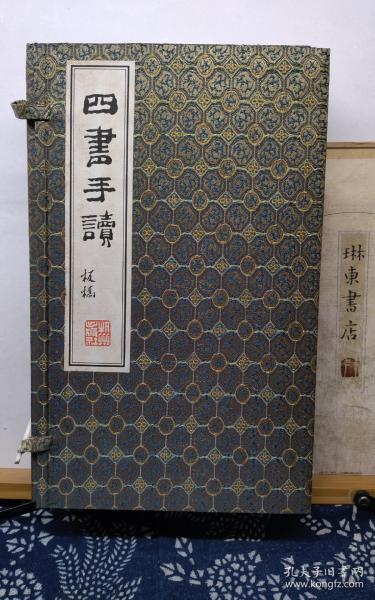 四書手讀
板橋
琳東書店
孔夫子旧书网
www.kongfz.com